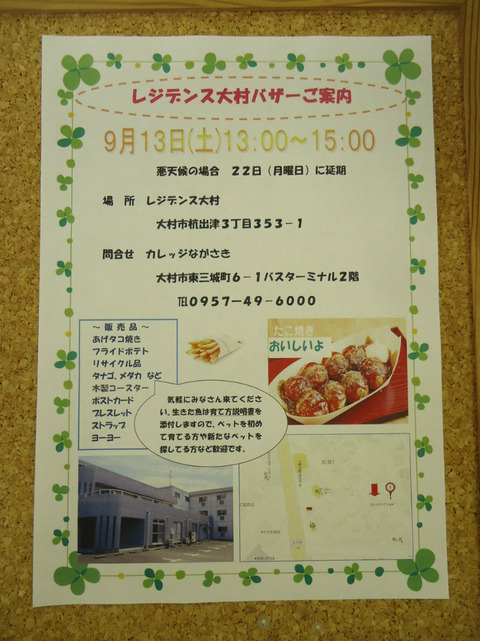 レジデンス大村バザーご案内
9月13日(土)13:00～15:00
悪天候の場合　22日（月曜日）に延期
場　所　レジデンス大村
大村市杭出津3丁目353－1
問合せ　カレッジながさき
大村市東三城町6－1バスターミナル2階
TEL0957－49－6000
～ 販 売 品 ～
あげタコ焼き
フライドポテト
リサイクル品
タナゴ、メダカ など
木製コースター
ポストカード
ブレスレット
ストラップ
ヨーヨー
たこ焼き
おいしいよ
気軽にみなさん来てくださ
い。生きた魚は育て方説明書を
添付しますので、ペットを初め
て育てる方や新たなペットを
探してる方など歓迎です。